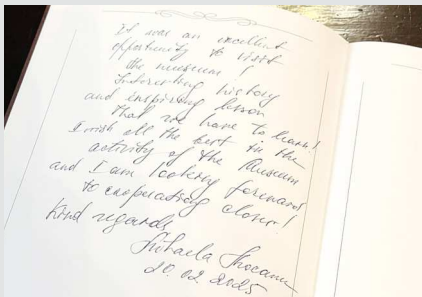 It was an excellent
opportunity to visit
the museum!
Interesting history
and inspiring lesson
that we have to learn!
I wish all the best in the
activity of the Museum
and I am looking forward
to cooperating closer!
Kind regards
20 02 2025